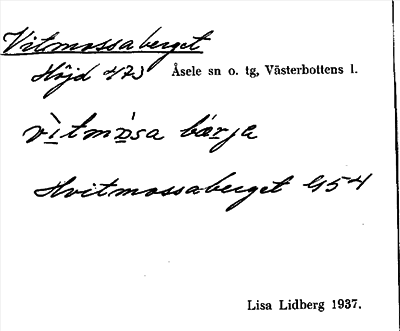 Vitmossaberget
Höjd 473 Åsele sn o. tg, Västerbottens l.
vìtmòsa bærja
Hvitmossaberget G54
Lisa Lidberg 1937.